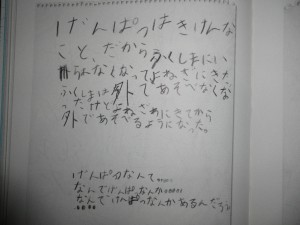 げんぱつはきけんな
こと、だからふくしまにい
られなくなってよねざわにきた
ふくしまは外であそべなくな
ったけどよねざわにきてから
外であそべるようになった。
げんぱつなんて……
なんでげんぱなんか……
なんでげんぱつなんかあるんだろう